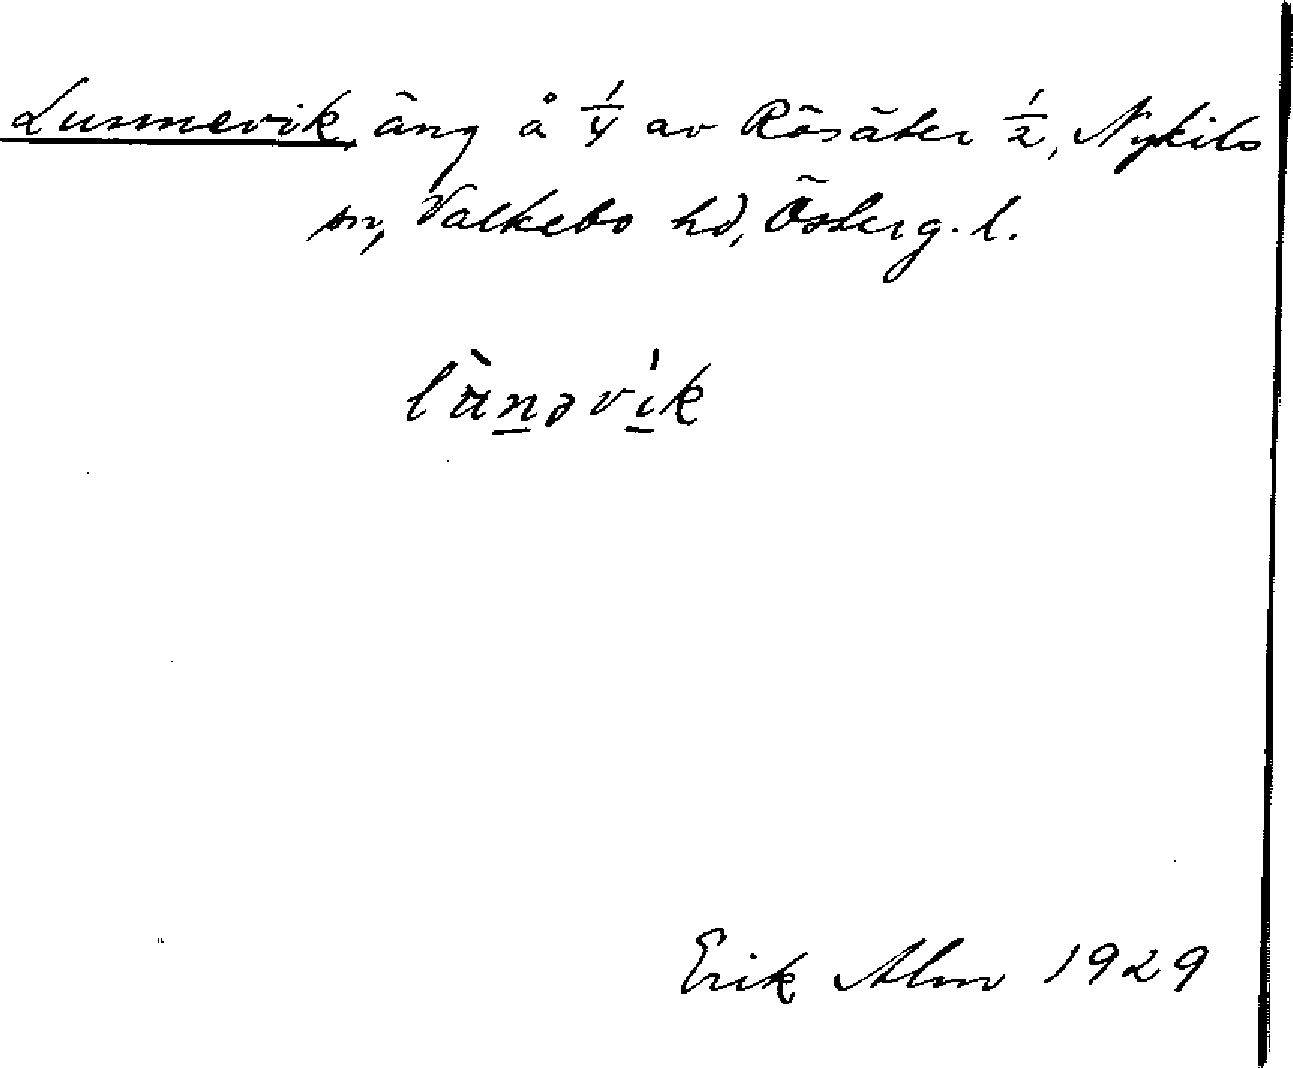 Lunnevik, äng å 1/4 av Rösäter 1/2, Nykils
sn, Valkebo hd, Österg. l.
lùnəvík
Erik Alm 1929